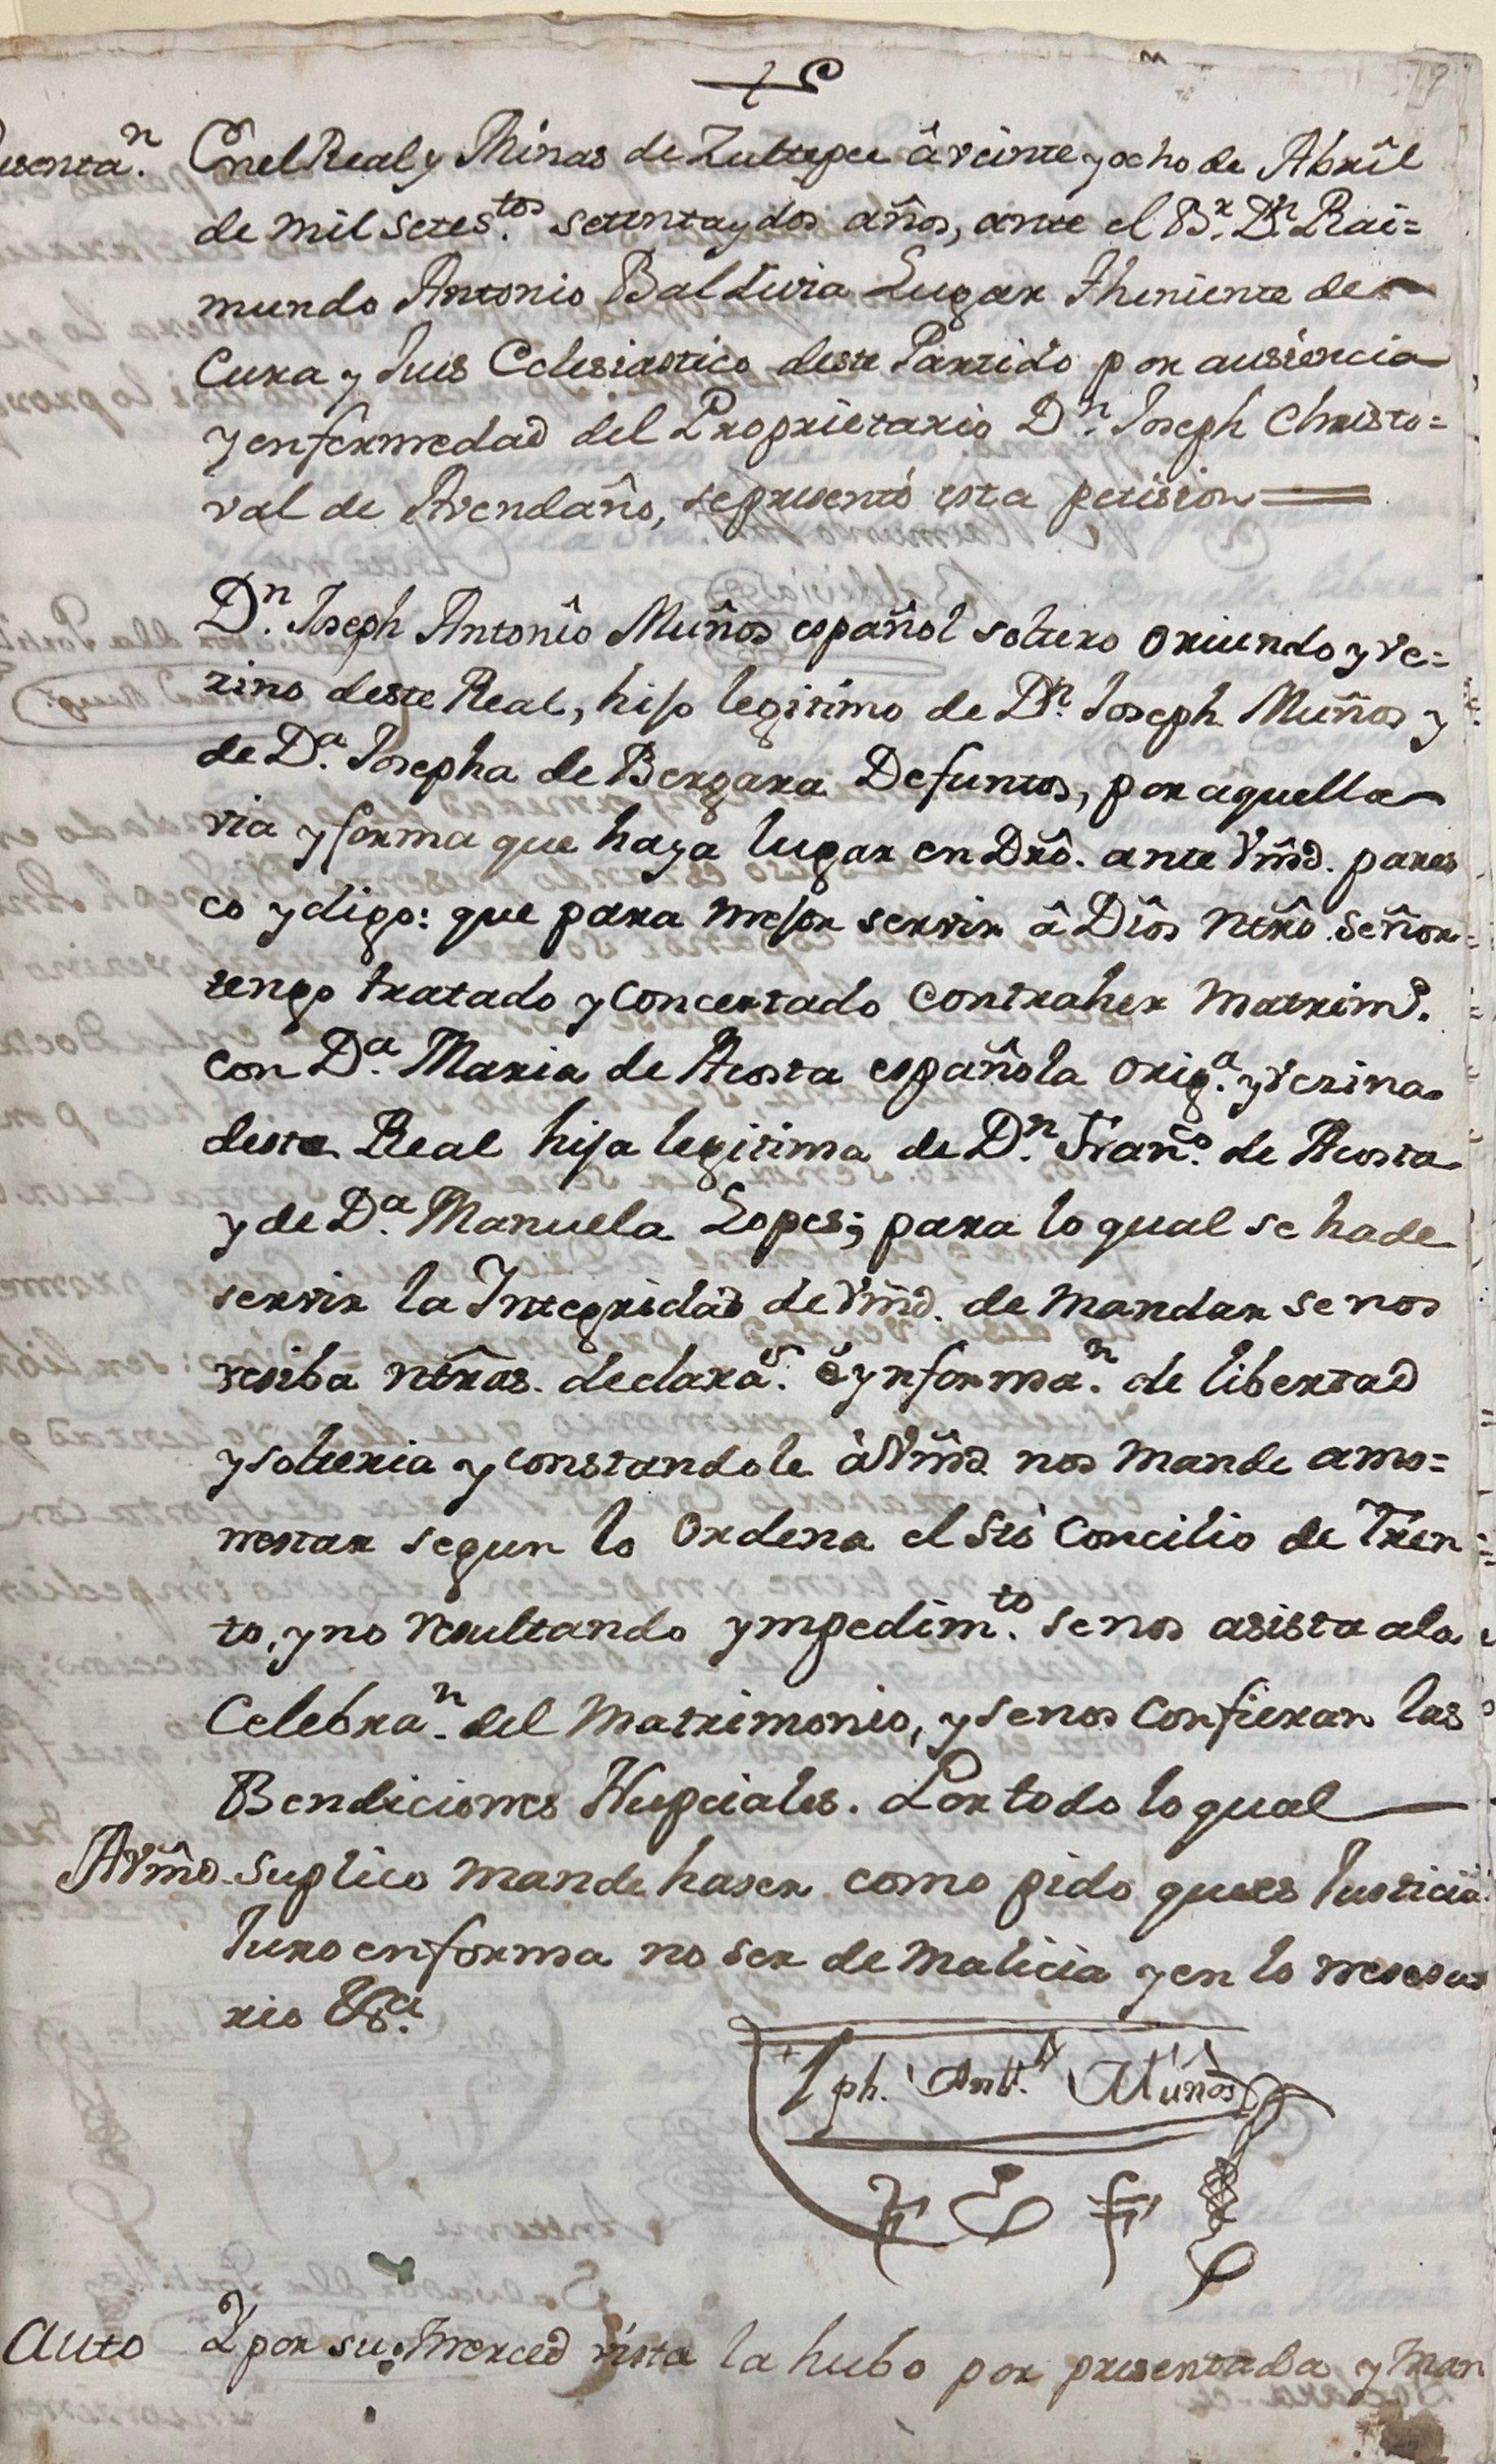 En el Real y Minas de Zultepec â veinte y ocho de Abrîl
de mil setes.tos setenta y dos años, ante el B.r D.n Rai=
mundo Antonio Baldivia Lugar Theniente de
Cura y Jues Eclesiastico deste Partido por ausiencia
y enfermedad del Proprietario D.n Joseph Christo=
val de Avendaño, se presentó esta petision =
D.n Joseph Antonîo Muños español soltero oriundo y ve=
zino deste Real, hijo legitimo de D.n Joseph Muños y
de D.a Josepha de Bergara Defuntos, por aquella
via y forma que haya lugar en Drô. ante Vm̃d. pares
co y digo: que para mejor servir â Dîos Ntrô Señor
tengo tratado y concertado contraher Matrim.o
con D.a Maria de Acosta española orig.a y vezina
deste Real hija legitima de D.n Fran.co de Acosta
y de D.a Manuela Lopes; para lo qual se ha de
servir la Integridad de Vm̃d. de mandar se nos
resiba ntrâs. declara.s ê ynforma.n de libertad
y solteria y constandole à Vm̃d nos mande amo=
nestar segun lo ordena el Stô Concilio de Tren=
to, y no resultando ympedim.to se nos asista a la
Celebra.n del Matrimonio, y se nos confieran las
Bendiciones Nupciales. Por todo lo qual
A Vm̃d. suplico mande haser como pido que es Justicia
Juro en forma no ser de malicia y en lo nesesa
rio &.a
Jph. Ant.o Muños
Auto Y por su Merced vista la hubo por presentada y man